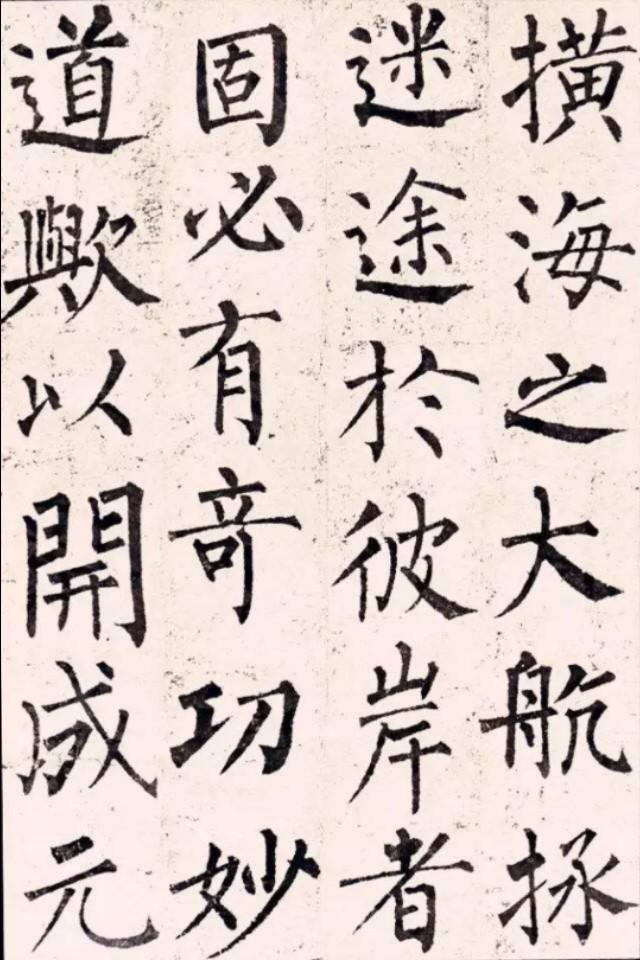 橫海之大航拯
迷途於彼岸者
固必有奇功妙
道歟以開成元